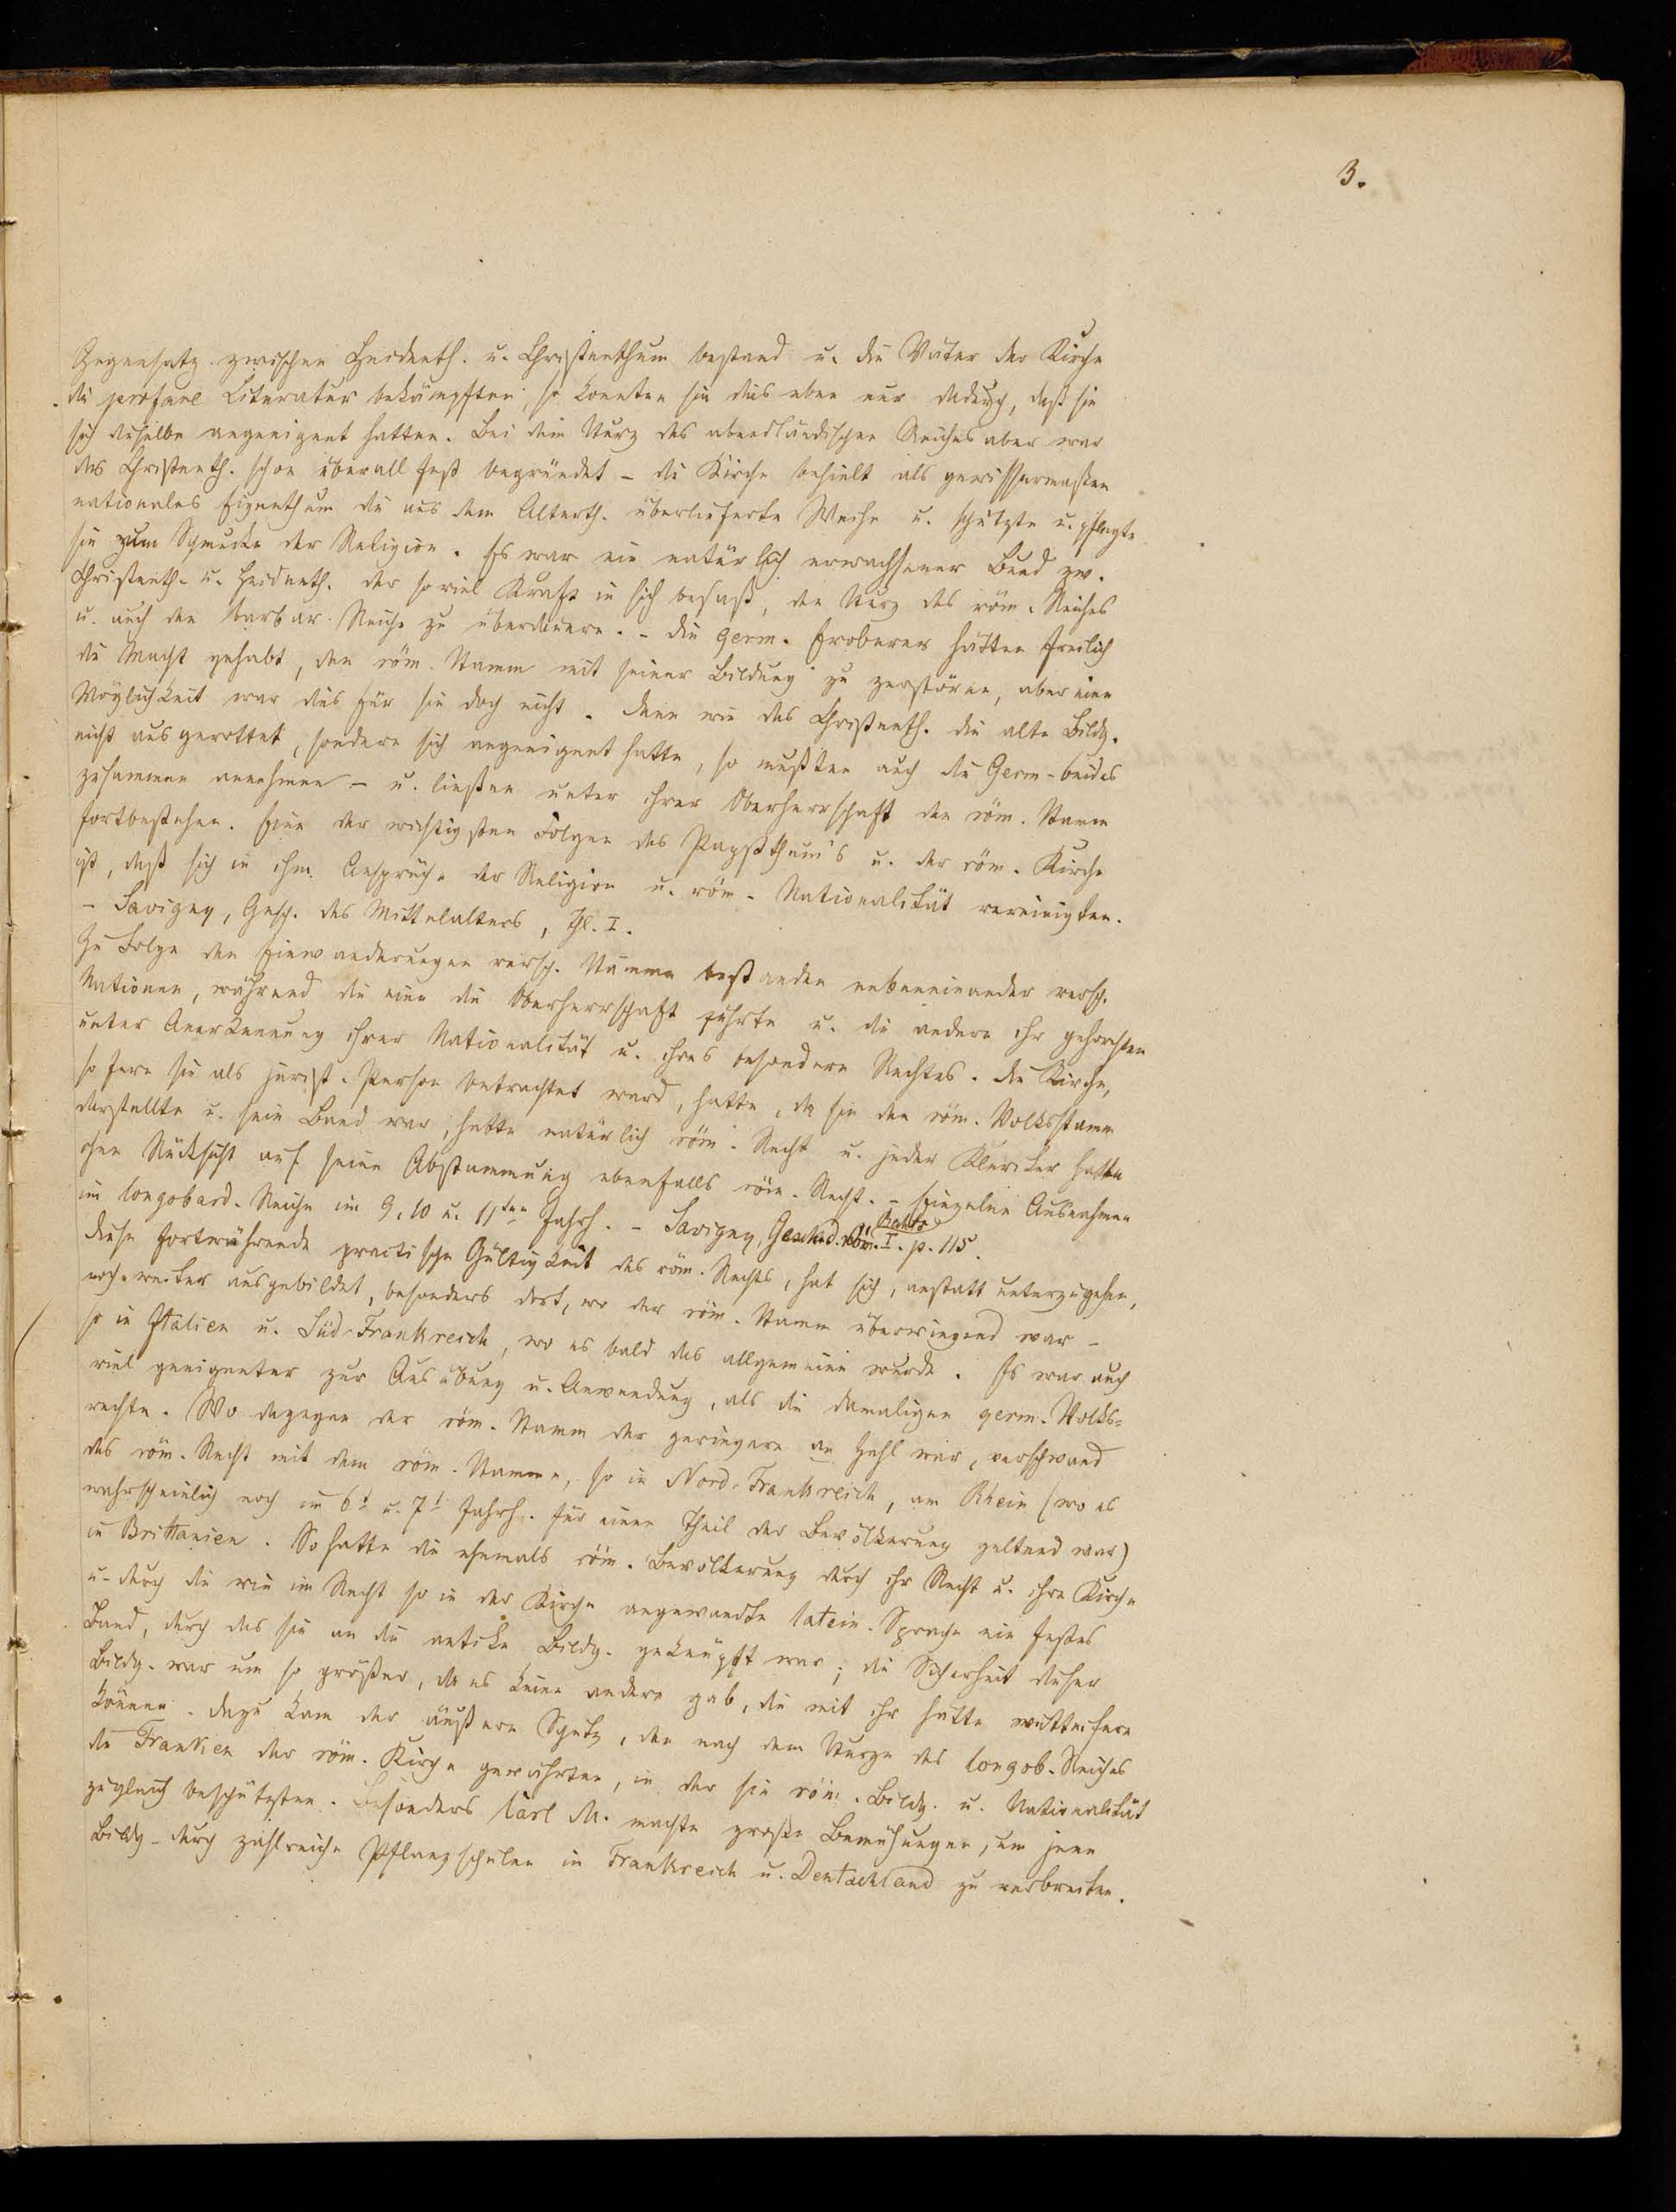 3.
Gegensatz zwischen Heidenth. u. Christenthum bestand u. die Väter der Kirche
die profane Literatur bekämpften, so konnten sie dies eben nur dadurch, daß sie
sich dieselbe angeeignet hatten. Bei dem Sturz des abendländischen Reiches aber war
das Christenth. schon überall fest begründet – die Kirche behielt als gewissermaßen
nationales Eigenthum die aus dem Alterth. überlieferte Weihe u. schützte u. pflegte
sie zum Schmucke der Religion. Es war ein natürlich erwachsener Bund zw.
Christenth. u. Heidenth. der so viel Kraft in sich besaß, den Sturz des röm. Reiches
u. auch der barbar. Reiche zu überdauern. – Die germ. Eroberer hätten freilich
die Macht gehabt, den röm. Stamm mit seiner Bildung zu zerstören, aber eine
Möglichkeit war dies für sie doch nicht. Denn wie das Christenth. die alte Bildg.
nicht ausgerottet, sondern sich angeeignet hatte, so mußten auch die Germ. beides
zusammen annehmen – u. ließen unter ihrer Oberherrschaft den röm. Stamm
fortbestehen. Eine der wichtigsten Folgen des Papstthum's u. der röm. Kirche
ist, daß sich in ihm Ansprüche der Religion u. röm. Nationalität vereinigten.
– Savigny, Gesch. des Mittelalters, Thl. I.
Zu Folge den Einwanderungen versch. Stämme bestanden nebeneinander versch.
Nationen, während die eine die Oberherrschaft führte u. die andere ihr gehorchten
unter Anerkennung ihrer Nationalität u. ihres besondern Rechtes. Die Kirche,
so fern sie als jurist. Person betrachtet ward, hatte, da sie den röm. Volksstamm
darstellte u. sein Band war, hatte natürlich röm. Recht u. jeder Kleriker hatte
ohne Rücksicht auf seine Abstammung ebenfalls röm. Recht. – Einzelne Ausnahmen
im longobard. Reiche im 9, 10 u. 11ten Jahrh. – Savigny, Gesch. d. röm. Rechts I. p. 115.
Diese fortwährende practische Gültigkeit des röm. Rechts, hat sich, anstatt unterzugehen,
noch weiter ausgebildet, besonders dort, wo der röm. Stamm überwiegend war –
so in Italien u. Süd-Frankreich, wo es bald das allgemeine wurde. Es war auch
viel geeigneter zur Ausübung u. Anwendung, als die damaligen germ. Volks=
rechte. Wo dagegen der röm. Stamm der geringere an Zahl war, verschwand
das röm. Recht mit dem röm. Stamme, so in Nord-Frankreich, am Rhein (wo es
wahrscheinlich noch im 6t u. 7t Jahrh. für einen Theil der Bevölkerung geltend war)
in Brittanien. So hatte die ehemals röm. Bevölkerung durch ihr Recht u. ihre Kirche
u. durch die wie im Recht so in der Kirche angewandte latein. Sprache ein festes
Band, durch das sie an die antike Bildg. geknüpft war; die Sicherheit dieser
Bildg. war um so größer, da es keine andere gab, die mit ihr hätte wetteifern
können. Dazu kam der äußere Schutz, den nach dem Sturze des longob. Reiches
die Franken der röm. Kirche gewährten, in der sie röm. Bildg. u. Nationalität
zugleich beschützten. Besonders Karl M. machte große Bemühungen, um jene
Bildg. durch zahlreiche Pflanzschulen in Frankreich u. Deutschland zu verbreiten.